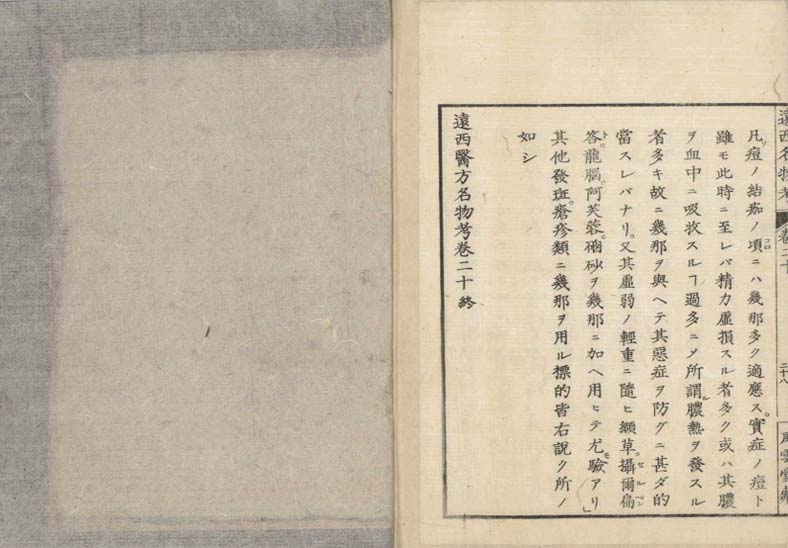 遠西名物考 卷二十 二十八 風雲堂藏
凡ソ痘ノ結痂ノ頃コロニハ幾那多ク適應ス。實症ノ痘ト
雖モ此時ニ至レバ精力虛損スル者多ク或ハ其膿
ヲ血中ニ吸收スルヿ過多ニメ所謂ル膿熱ヲ發スル
者多キ故ニ幾那ヲ與ヘテ其惡症ヲ防グニ甚ダ的
當スレバナリ。又其虛弱ノ輕重ニ隨ヒ纈草。攝爾扁セルペン
答ト。龍腦。阿芙蓉。硇砂ヲ幾那ニ加ヘ用ヒテ尤モ驗アリ」
其他發斑。瘡疹類ニ幾那ヲ用ル標的皆右說ク所ノ
如シ
遠西醫方名物考卷二十終